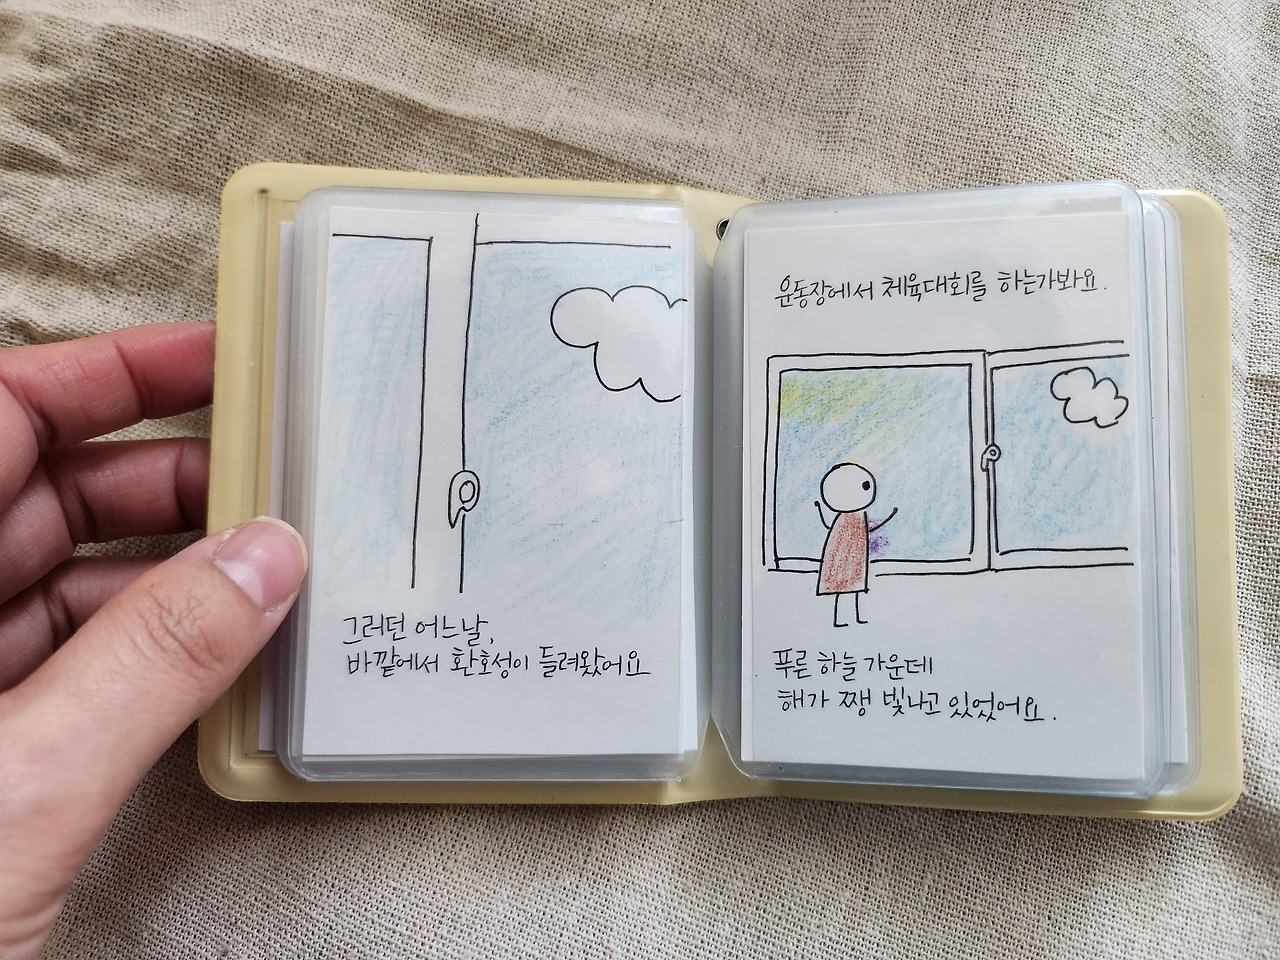 그러던 어느날,
바깥에서 환호성이 들려왔어요
운동장에서 체육대회를 하는가봐요.
푸른 하늘 가운데
해가 쨍 빛나고 있었어요.